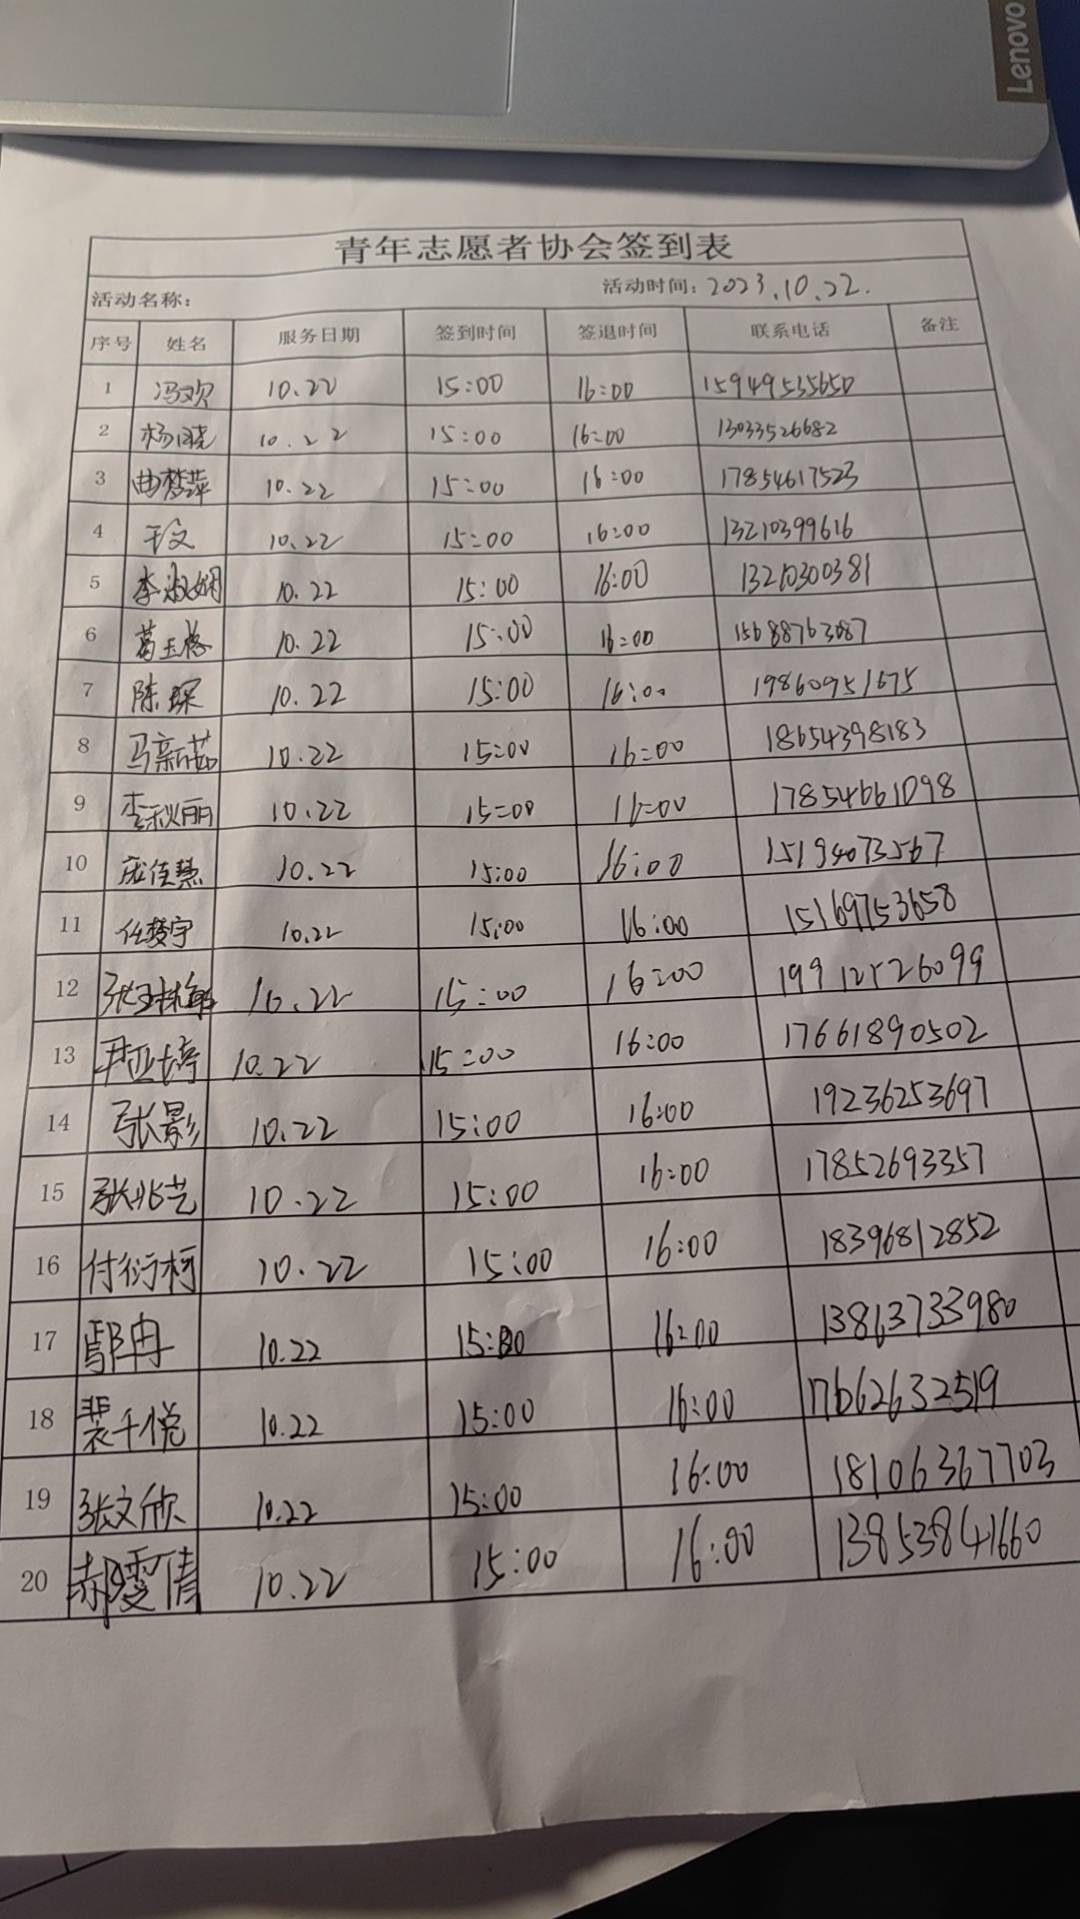 Lenovo
青年志愿者协会签到表
活动名称: 活动时间: 2023.10.22.
序号 姓名 服务日期 签到时间 签退时间 联系电话 备注
1 冯欢 10.22 15:00 16:00 15949535650
2 杨晓 10.22 15:00 16:00 13033526682
3 曲梦萍 10.22 15:00 16:00 17854617523
4 于文 10.22 15:00 16:00 13210399616
5 李淑娴 10.22 15:00 16:00 13210300381
6 葛玉格 10.22 15:00 16:00 15688763087
7 陈琛 10.22 15:00 16:00 19860951675
8 马新茹 10.22 15:00 16:00 18654398183
9 李秋丽 10.22 15:00 16:00 17854661098
10 庞佳慧 10.22 15:00 16:00 15194073567
11 任梦宇 10.22 15:00 16:00 15169753658
12 10.22 15:00 16:00 19912526099
13 尹亚婷 10.22 15:00 16:00 17661890502
14 张影 10.22 15:00 16:00 19236253697
15 张兆艺 10.22 15:00 16:00 17852693357
16 付衍柯 10.22 15:00 16:00 18396812852
17 鄢冉 10.22 15:00 16:00 13863733980
18 裴千悦 10.22 15:00 16:00 17662632519
19 张文欣 10.22 15:00 16:00 18106367703
20 郝雯倩 10.22 15:00 16:00 13853841660